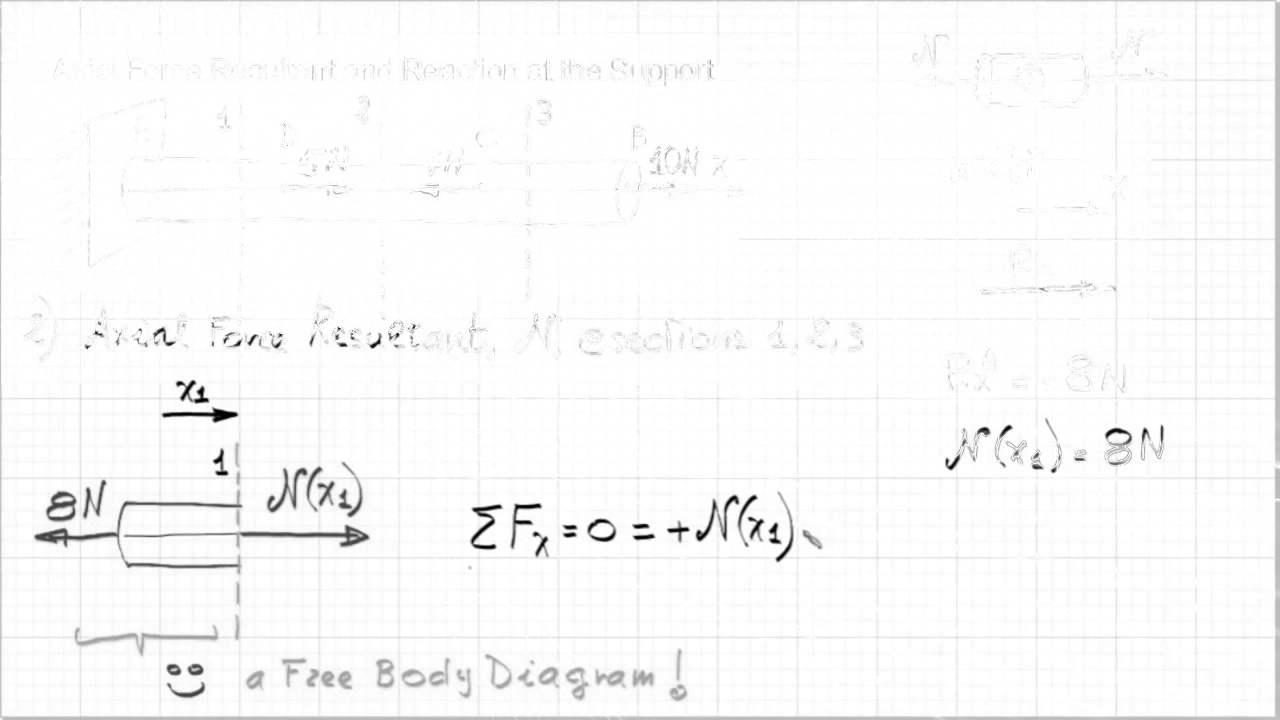 Axial Force Resultant and Reaction at the Support
N N
1 2 3
A D C B
5N 7N 10N x
x
R
2) Axial Force Resultant, N, @sections 1,2,3
Rx^A = -8N
x₁
N(x₁) = 8N
1
8N N(x₁)
ΣFₓ = 0 = +N(x₁)
a Free Body Diagram!